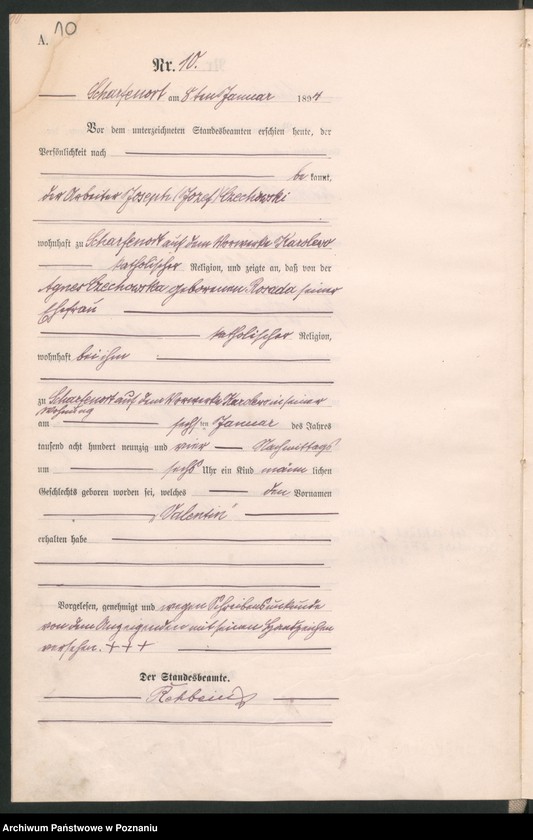 A. 10
Nr. 10.
Scharfenort am 8ten Januar 1894
Vor dem unterzeichneten Standesbeamten erschien heute, der
Persönlichkeit nach
be kannt,
der Arbeiter Joseph (Jozef) Czechowski
wohnhaft zu Scharfenort auf dem Vorwerke Karolewo
katholischer Religion, und zeigte an, daß von der
Agnes Czechowska geborenen Rosada seiner
Ehefrau
katholischer Religion,
wohnhaft bei ihm
zu Scharfenort auf dem Vorwerke Karolewo in seiner
Wohnung
am sechsten Januar des Jahres
tausend acht hundert neunzig und vier Nachmittags
um sechs Uhr ein Kind männ lichen
Geschlechts geboren worden sei, welches den Vornamen
Valentin
erhalten habe
Vorgelesen, genehmigt und wegen Schreibensunkunde
von dem Anzeigenden mit seinem Handzeichen
versehen. + + +
Der Standesbeamte.
Rehbein
Archiwum Państwowe w Poznaniu